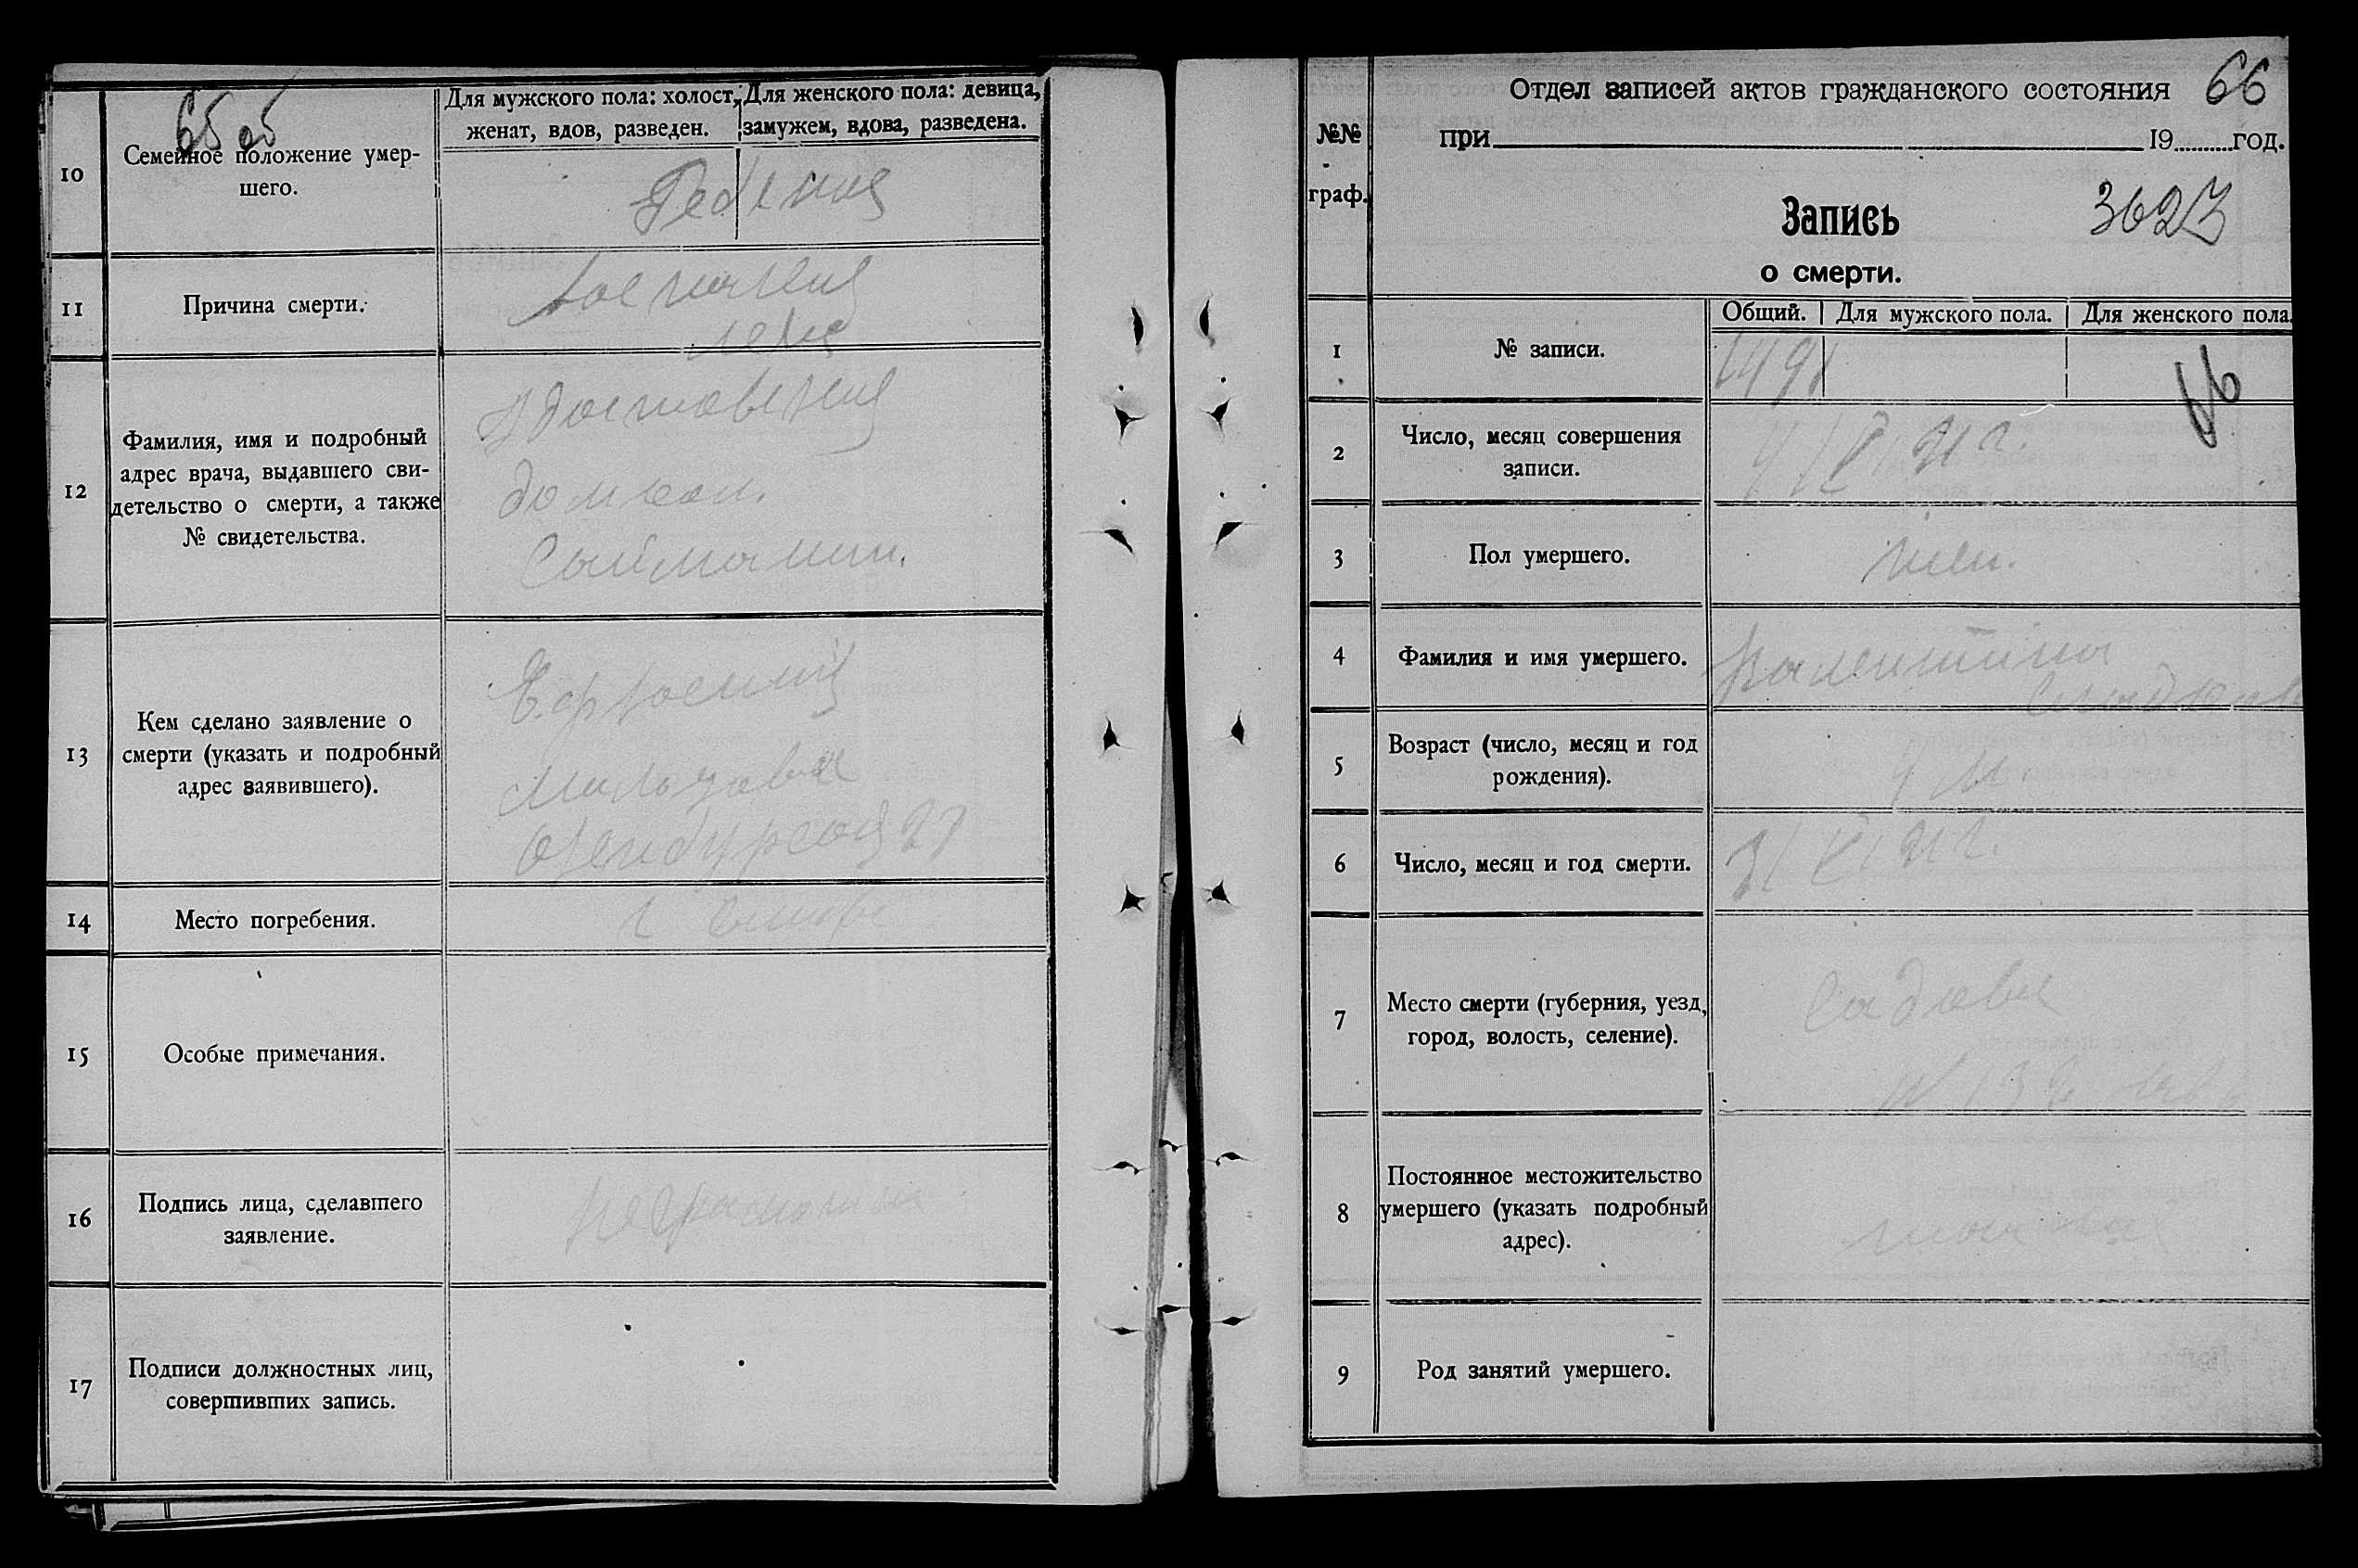 65 об
10
Семейное положение умер-
шего.
Для мужского пола: холост,
женат, вдов, разведен.
Для женского пола: девица,
замужем, вдова, разведена.
Ребенок
11
Причина смерти.
Воспаление
легк
12
Фамилия, имя и подробный
адрес врача, выдавшего сви-
детельство о смерти, а также
№ свидетельства.
Удостоверение
домком.
13
Кем сделано заявление о
смерти (указать и подробный
адрес заявившего).
Мальцева
Оренбургская 27
14
Место погребения.
15
Особые примечания.
16
Подпись лица, сделавшего
заявление.
Неграмотн
17
Подписи должностных лиц,
совершивших запись.
66
№№
граф.
Отдел записей актов гражданского состояния
при 19 год.
Запись
о смерти.
3623
1
№ записи.
Общий.
Для мужского пола.
Для женского пола.
66
2
Число, месяц совершения
записи.
3
Пол умершего.
жен.
4
Фамилия и имя умершего.
Валентина
5
Возраст (число, месяц и год
рождения).
6
Число, месяц и год смерти.
7
Место смерти (губерния, уезд,
город, волость, селение).
Садовая
8
Постоянное местожительство
умершего (указать подробный
адрес).
9
Род занятий умершего.